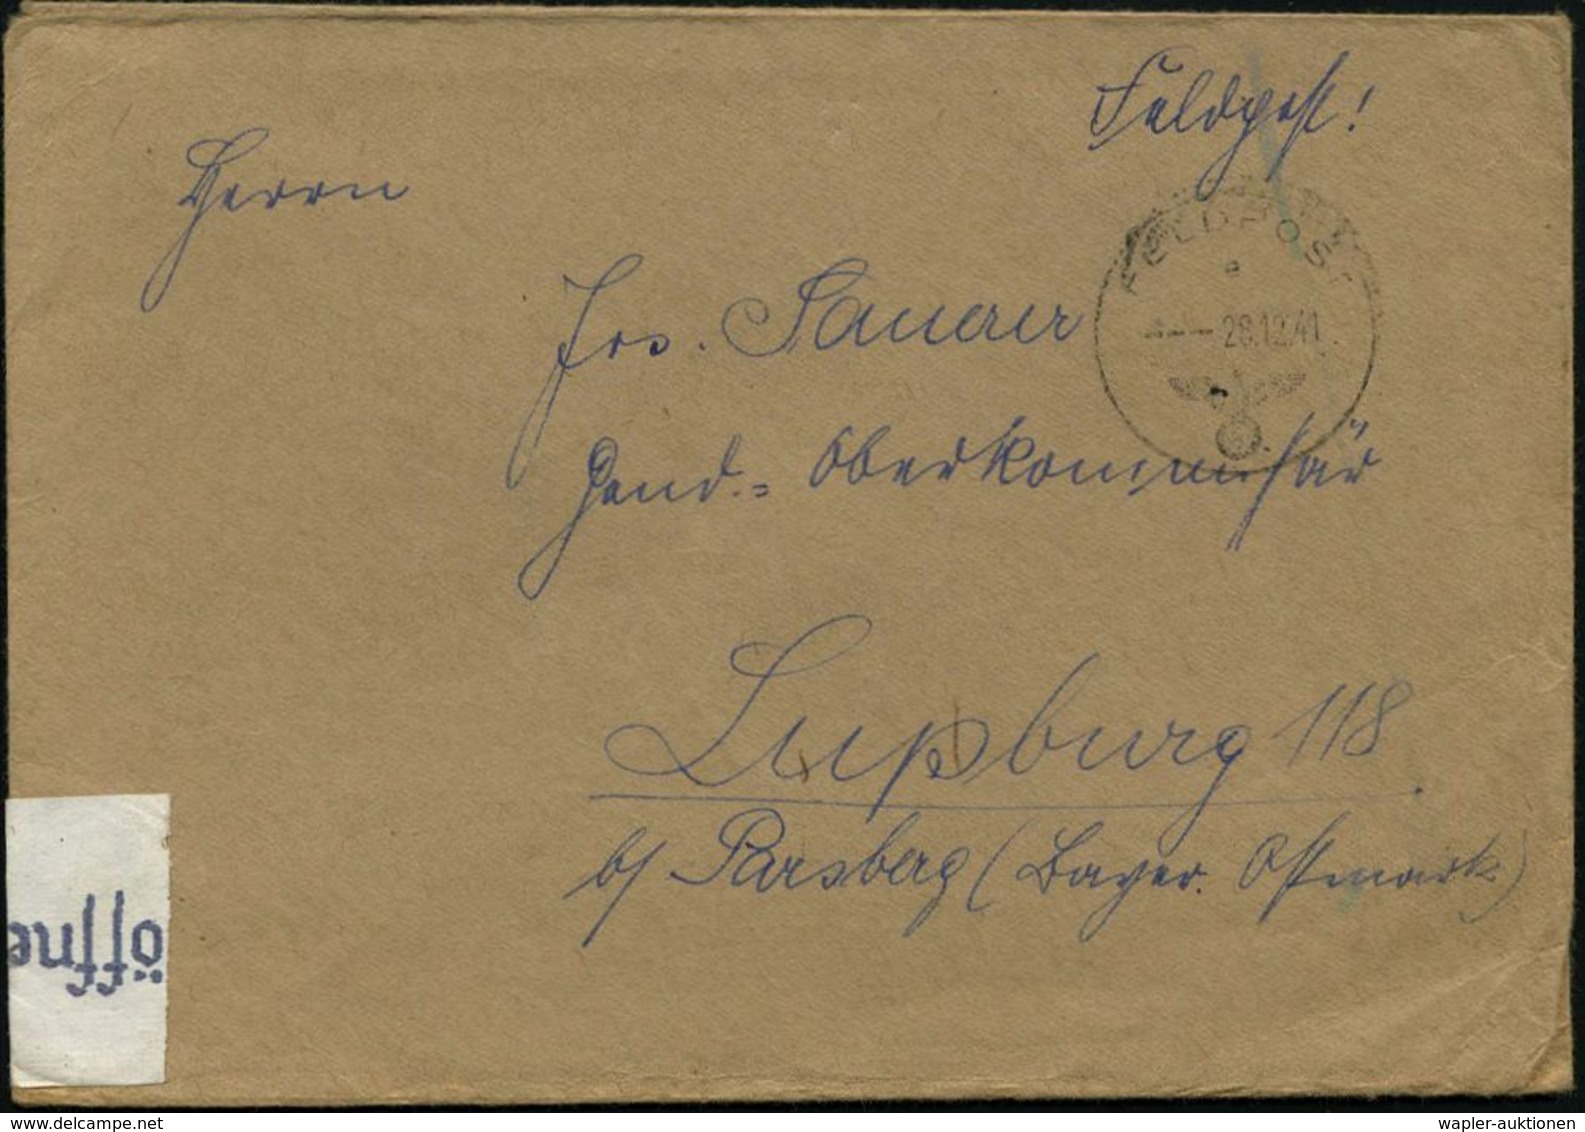 Feldpost!
Herrn
FELDPOST
e
28.12.41
Jos. Sauerer
Gend.= Oberkommissär
Lupburg 118
b/ Parsberg (Bayer. Ostmark)
öffne
wapler-auktionen
www.delcampe.net